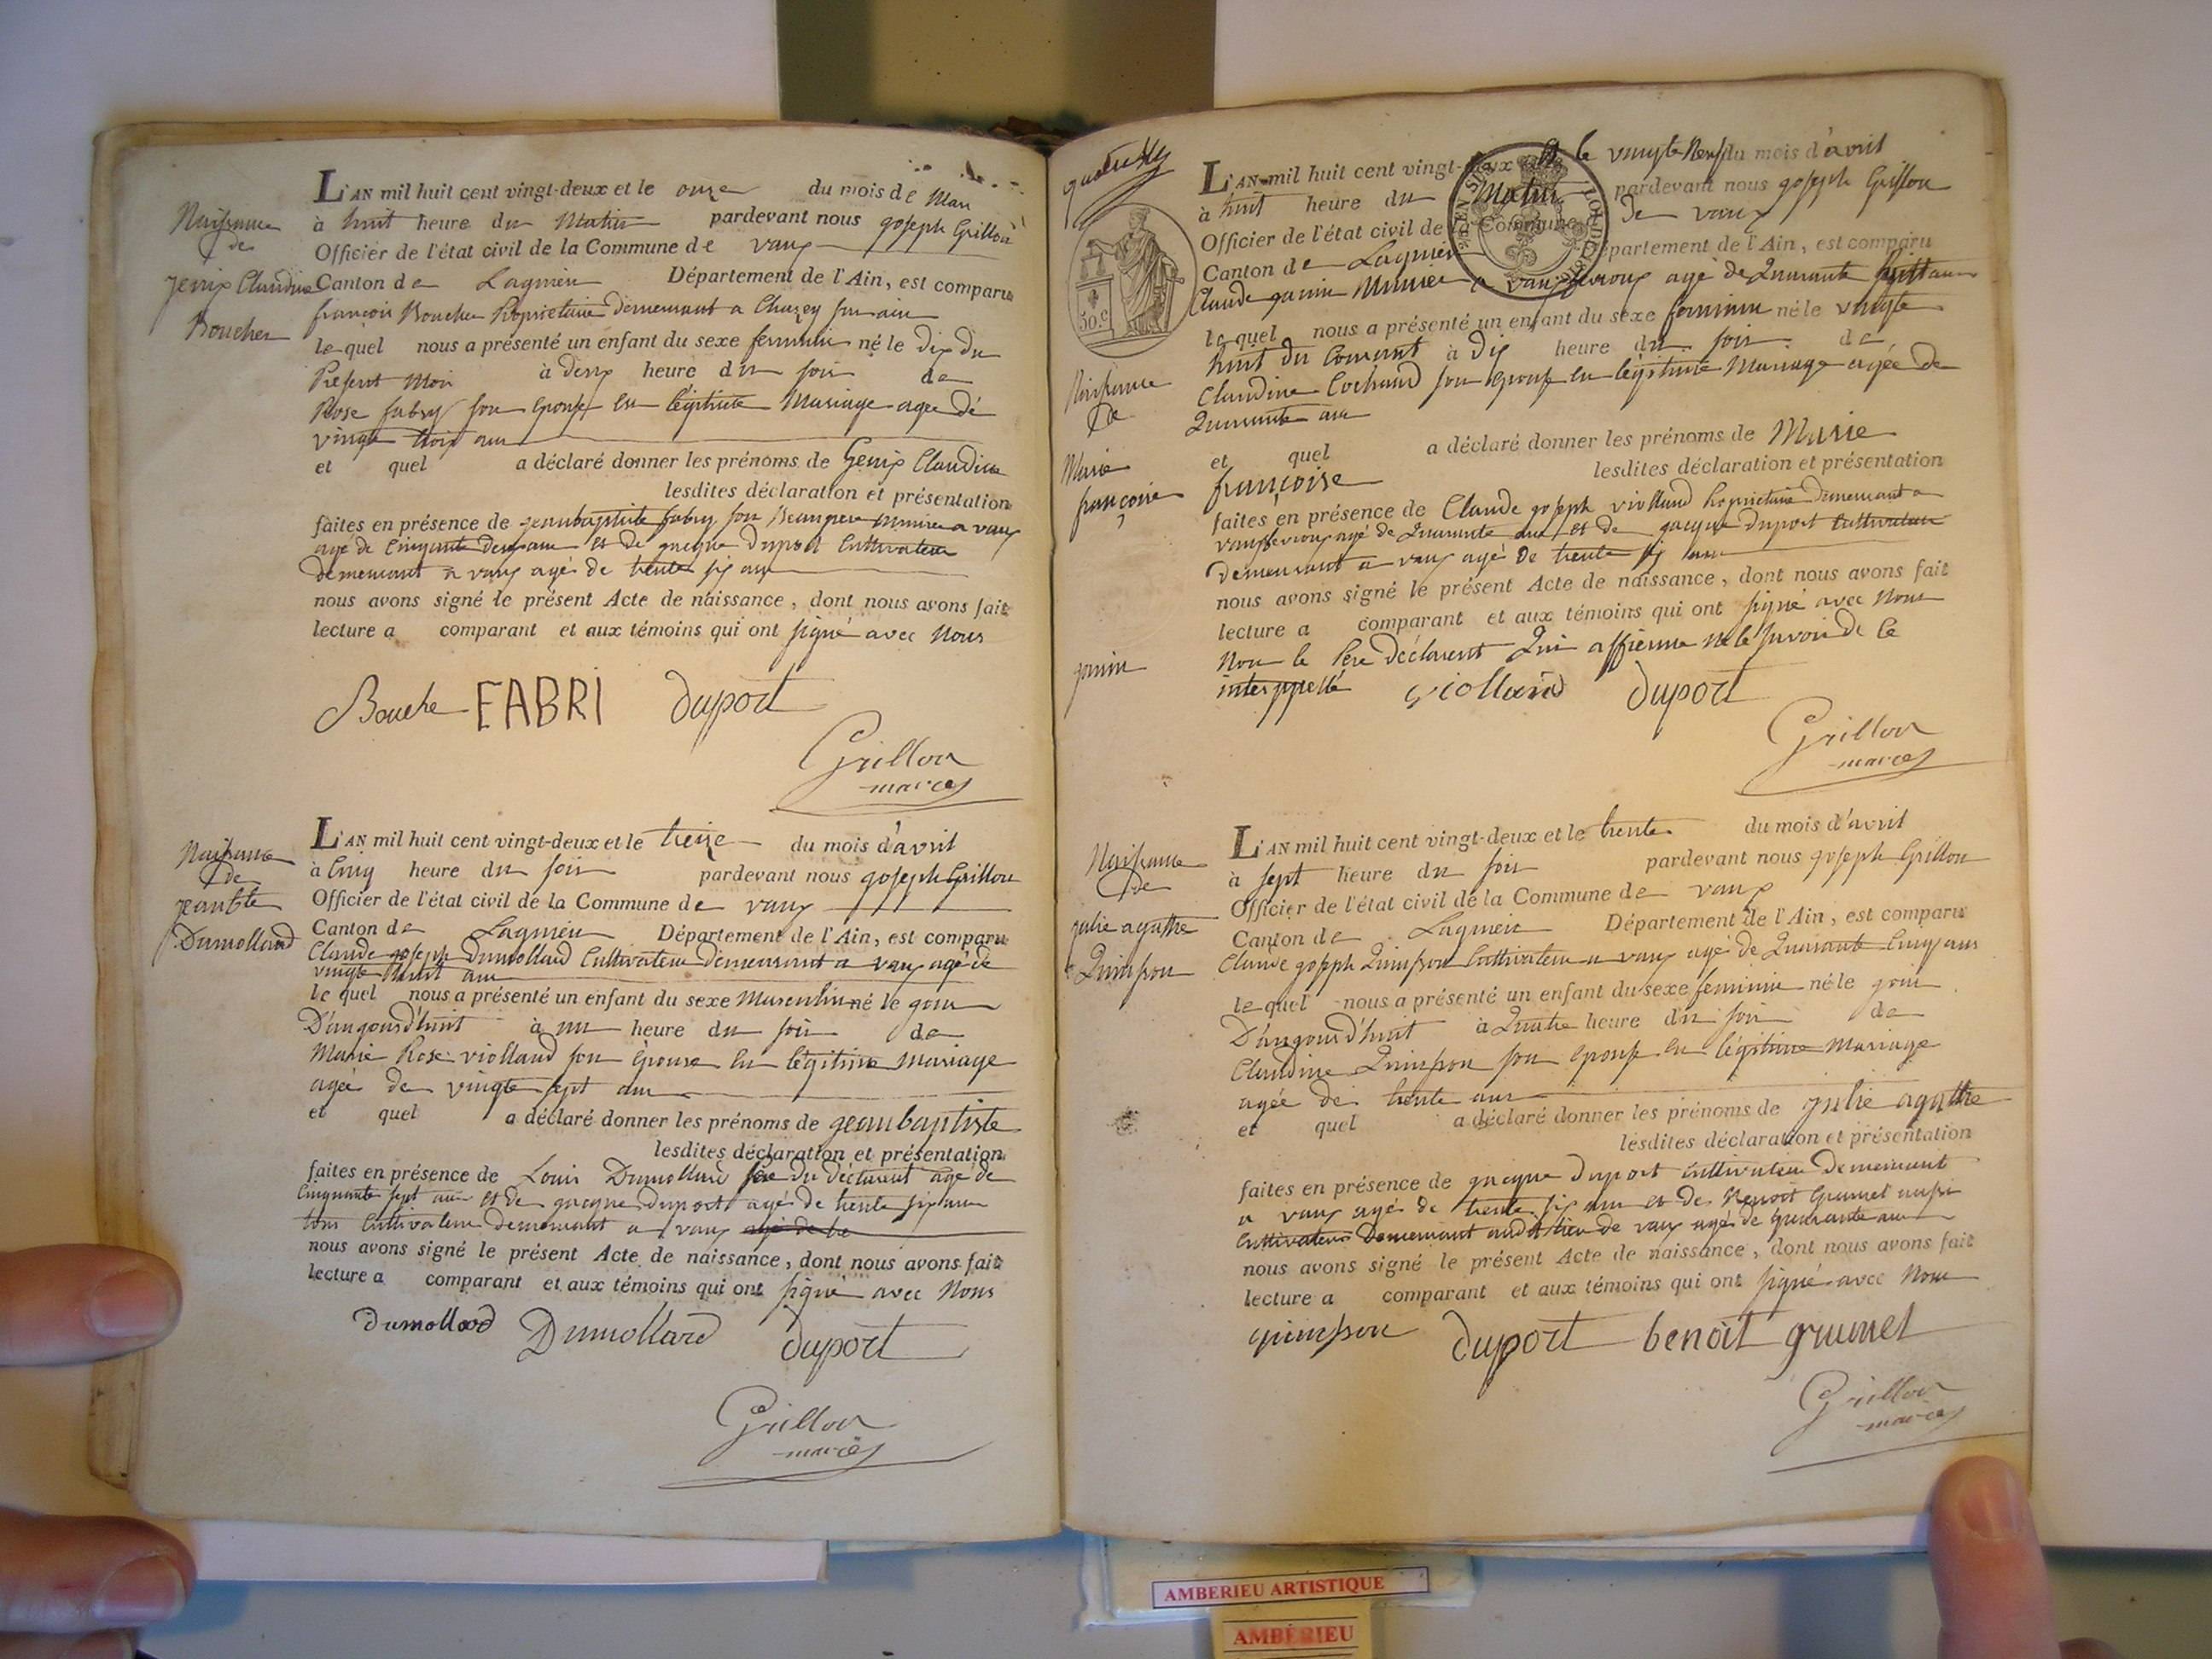 Naissance
de
Jenny Claudine
Boucher
L'AN mil huit cent vingt-deux et le onze du mois de Mars
à huit heure du Matin pardevant nous joseph Grillon
Officier de l'état civil de la Commune de vaux
Canton de Lagnieu Département de l'Ain, est comparu
françois Boucher Proprietaire demeurant a Chazey sur ain
lequel nous a présenté un enfant du sexe feminin né le dix du
Present Mois à deux heure du soir de
Rose fabry son epouse en légitime Mariage agee de
vingte trois ans
et quel a déclaré donner les prénoms de Claudine
lesdites déclaration et présentation
faites en présence de jeanbaptiste fabry son Beaupere a vaux
agé de Cinquante deux ans et de jacque duport Cultivateur
demeurant a vaux agé de trente six ans
nous avons signé le présent Acte de naissance, dont nous avons fait
lecture a comparant et aux témoins qui ont signé avec Nous
Bouche FABRI duport
Grillon
Naissance
de
jean bte
Dumollard
L'AN mil huit cent vingt-deux et le treize du mois d'avril
à Cinq heure du soir pardevant nous joseph Grillon
Officier de l'état civil de la Commune de vaux
Canton de Lagnieu Département de l'Ain, est comparu
Claude joseph Dumollard Cultivateur demeurant a vaux agé de
vingte huit ans
le quel nous a présenté un enfant du sexe Masculin né le jour
D'aujourd'huit à un heure du soir de
Marie Rose violland son épouse en légitime mariage
agée de vingte sept ans
et quel a déclaré donner les prénoms de jeanbaptiste
lesdites déclaration et présentation
faites en présence de Louis Dumollard du déclarent agé de
Cinquante sept ans et de jacque duport agé de trente six ans
tous Cultivateur demeurant a vaux
nous avons signé le présent Acte de naissance, dont nous avons fait
lecture a comparant et aux témoins qui ont signé avec Nous
dumollard Dumollard duport
Grillon
50.c
Naissance
de
Marie
françoise
janin
L'AN mil huit cent vingt-deux le vingte Neuf du mois d'avril
à huit heure du Matin pardevant nous joseph Grillon
Officier de l'état civil de la Commune De vaux
Canton de Lagnieu Département de l'Ain, est comparu
Claude janin a agé de Quarante huit ans
le quel nous a présenté un enfant du sexe feminin né le vingte
huit du Courant à dix heure du soir de
Claudine Cochand son epouse en légitime Mariage agée de
Quarante ans
et quel a déclaré donner les prénoms de Marie
françoise lesdites déclaration et présentation
faites en présence de Claude joseph violland Proprietaire demeurant a
agé de Quarante ans et de jacque duport Cultivateur
demeurant a vaux agé De trente six ans
nous avons signé le présent Acte de naissance, dont nous avons fait
lecture a comparant et aux témoins qui ont signé avec Nous
Non le Pere déclarent Qui affirme Ne le savoir de Ce
interppellé violland duport
Grillon
Naissance
De
julie agathe
Quinsson
L'AN mil huit cent vingt-deux et le trente du mois d'avril
à sept heure du soir pardevant nous joseph Grillon
Officier de l'état civil de la Commune de vaux
Canton de Lagnieu Département de l'Ain, est comparu
Claude joseph Quinsson Cultivateur a vaux agé de Quarante Cinq ans
le quel nous a présenté un enfant du sexe feminin né le jour
D'aujourd'huit à Quatre heure du soir de
Claudine Quinsson son epouse en légitime Mariage
agée de trente ans
et quel a déclaré donner les prénoms de julie agathe
lesdites déclaration et présentation
faites en présence de jacque duport Cultivateur demeurant
a vaux agé de trente six ans et de Benoit Grumet aussi
Cultivateur Demeurant audit lieu de vaux agé de quarante ans
nous avons signé le présent Acte de naissance, dont nous avons fait
lecture a comparant et aux témoins qui ont signé avec Nous
quinsson duport benoit grumet
Grillon
AMBERIEU ARTISTIQUE
AMBÉRIEU